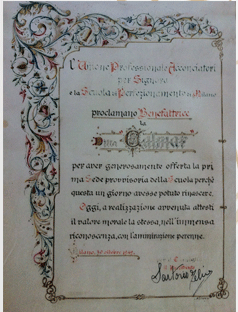 L'Unione Professionale Acconciatori
per Signora
e la Scuola di Perfezionamento di Milano
proclamano Benefattrice
la
per aver generosamente offerta la pri
ma Sede provvisoria della Scuola perchè
questa un giorno avesse potuto rinascere.
Oggi, a realizzazione avvenuta attesti
il valore morale la stessa, nell'immensa
riconoscenza, con l'ammirazione perenne.
Milano,